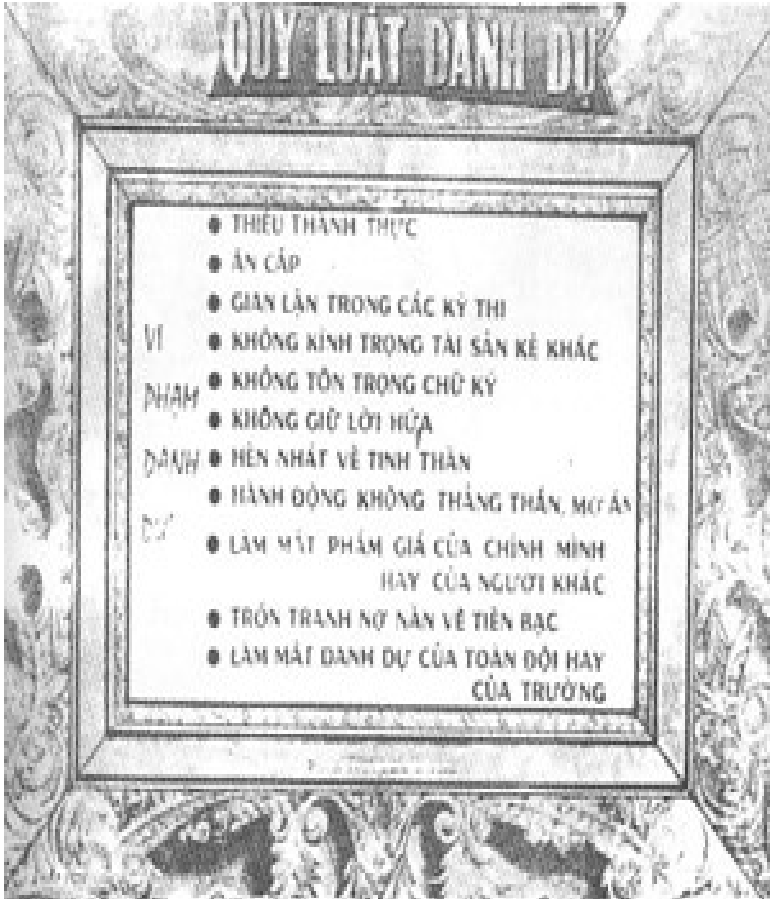 QUY LUẬT DANH DỰ
VI
PHẠM
DANH
DỰ
● THIẾU THÀNH THỰC
● ĂN CẮP
● GIAN LẬN TRONG CÁC KỲ THI
● KHÔNG KÍNH TRỌNG TÀI SẢN KẺ KHÁC
● KHÔNG TÔN TRỌNG CHỮ KÝ
● KHÔNG GIỮ LỜI HỨA
● HÈN NHÁT VỀ TINH THẦN
● HÀNH ĐỘNG KHÔNG THẲNG THẮN, MỜ ÁM
● LÀM MẤT PHẨM GIÁ CỦA CHÍNH MÌNH
HAY CỦA NGƯỜI KHÁC
● TRỐN TRÁNH NỢ NẦN VỀ TIỀN BẠC
● LÀM MẤT DANH DỰ CỦA TOÀN ĐỘI HAY
CỦA TRƯỜNG